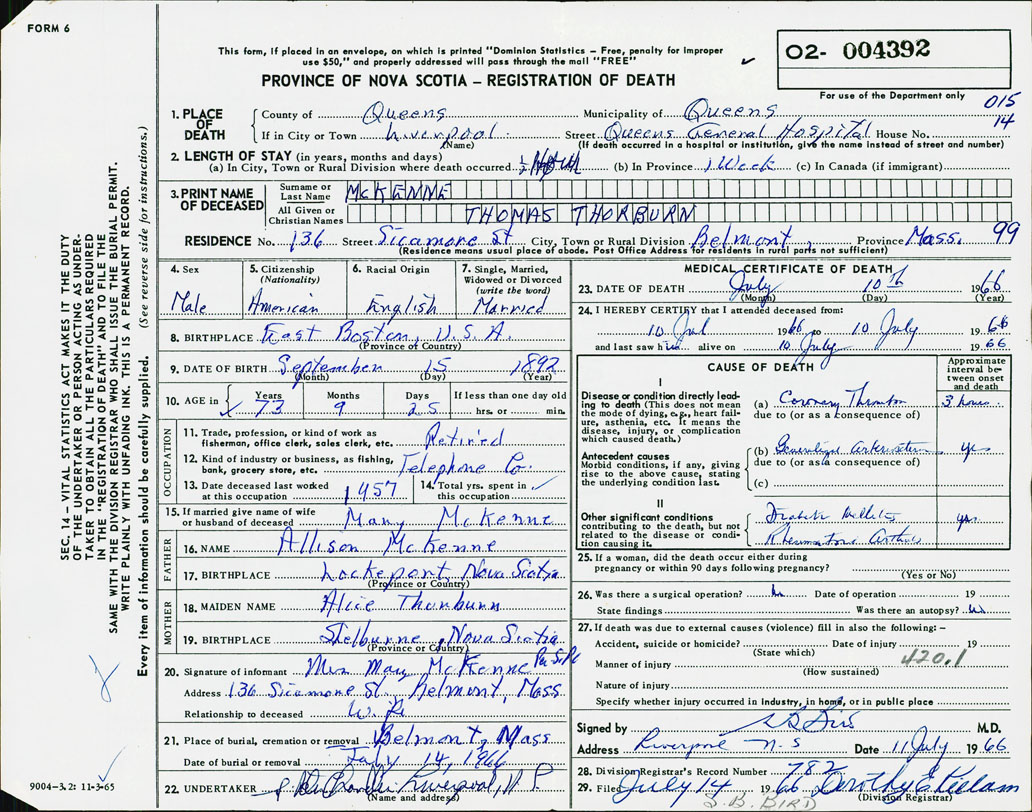 FORM 6
This form, if placed in an envelope, on which is printed "Dominion Statistics – Free, penalty for improper
use $50," and properly addressed will pass through the mail "FREE"
PROVINCE OF NOVA SCOTIA – REGISTRATION OF DEATH
02- 004392
For use of the Department only
015
14
1. PLACE OF DEATH
County of Queens Municipality of Queens
If in City or Town Liverpool Street Queens General Hospital House No.
(Name) (If death occurred in a hospital or institution, give the name instead of street and number)
2. LENGTH OF STAY (in years, months and days)
(a) In City, Town or Rural Division where death occurred ½ Hour (b) In Province 1 Week (c) In Canada (if immigrant)
3. PRINT NAME OF DECEASED
Surname or Last Name McKENNE
All Given or Christian Names THOMAS THORBURN
RESIDENCE No. 136 Street Sicamore St City, Town or Rural Division Belmont, Province Mass. 99
(Residence means usual place of abode. Post Office Address for residents in rural parts not sufficient)
4. Sex
Male
5. Citizenship (Nationality)
American
6. Racial Origin
English
7. Single, Married, Widowed or Divorced (write the word)
Married
8. BIRTHPLACE East Boston, U.S.A.
(Province or Country)
9. DATE OF BIRTH September 15 1892
(Month) (Day) (Year)
10. AGE in Years 73 Months 9 Days 25 If less than one day old hrs. or min.
OCCUPATION
11. Trade, profession, or kind of work as fisherman, office clerk, sales clerk, etc. Retired
12. Kind of industry or business, as fishing, bank, grocery store, etc. Telephone Co.
13. Date deceased last worked at this occupation 1957
14. Total yrs. spent in this occupation
15. If married give name of wife or husband of deceased Mary McKenne
FATHER
16. NAME Allison McKenne
17. BIRTHPLACE Lockeport, Nova Scotia
(Province or Country)
MOTHER
18. MAIDEN NAME Alice Thorburn
19. BIRTHPLACE Shelburne, Nova Scotia
(Province or Country)
20. Signature of informant Mrs Mary McKenne
Address 136 Sicamore St. Belmont, Mass
Relationship to deceased Wife
21. Place of burial, cremation or removal Belmont, Mass
Date of burial or removal July 14, 1966
22. UNDERTAKER Liverpool, N.S.
(Name and address)
MEDICAL CERTIFICATE OF DEATH
23. DATE OF DEATH July 10th 1966
(Month) (Day) (Year)
24. I HEREBY CERTIFY that I attended deceased from:
10 Jul 1966 to 10 July 1966
and last saw him alive on 10 July 1966
CAUSE OF DEATH
Approximate interval between onset and death
I
Disease or condition directly leading to death (This does not mean the mode of dying, e.g., heart failure, asthenia, etc. It means the disease, injury, or complication which caused death.)
(a) Coronary Thrombosis 3 hours
due to (or as a consequence of)
Antecedent causes
Morbid conditions, if any, giving rise to the above cause, stating the underlying condition last.
(b) Generalized arteriosclerosis yrs
due to (or as a consequence of)
(c)
II
Other significant conditions contributing to the death, but not related to the disease or condition causing it.
Diabetes Mellitus yrs
Rheumatoid Arthritis
25. If a woman, did the death occur either during pregnancy or within 90 days following pregnancy?
(Yes or No)
26. Was there a surgical operation? No Date of operation 19
State findings Was there an autopsy? No
27. If death was due to external causes (violence) fill in also the following: –
Accident, suicide or homicide? Date of injury 19
(State which)
420.1
Manner of injury
(How sustained)
Nature of injury
Specify whether injury occurred in industry, in home, or in public place
Signed by M.D.
Address Liverpool N.S Date 11 July 1966
28. Division Registrar's Record Number 782
29. Filed July 14 1966 Dorothy E. Killam
(Division Registrar)
S.B. BIRD
SEC. 14 – VITAL STATISTICS ACT MAKES IT THE DUTY
OF THE UNDERTAKER OR PERSON ACTING AS UNDER-
TAKER TO OBTAIN ALL THE PARTICULARS REQUIRED
IN THE "REGISTRATION OF DEATH" AND TO FILE THE
SAME WITH THE DIVISION REGISTRAR WHO SHALL ISSUE THE BURIAL PERMIT.
WRITE PLAINLY WITH UNFADING INK. THIS IS A PERMANENT RECORD.
Every item of information should be carefully supplied. (See reverse side for instructions.)
9004-3.2: 11-3-65